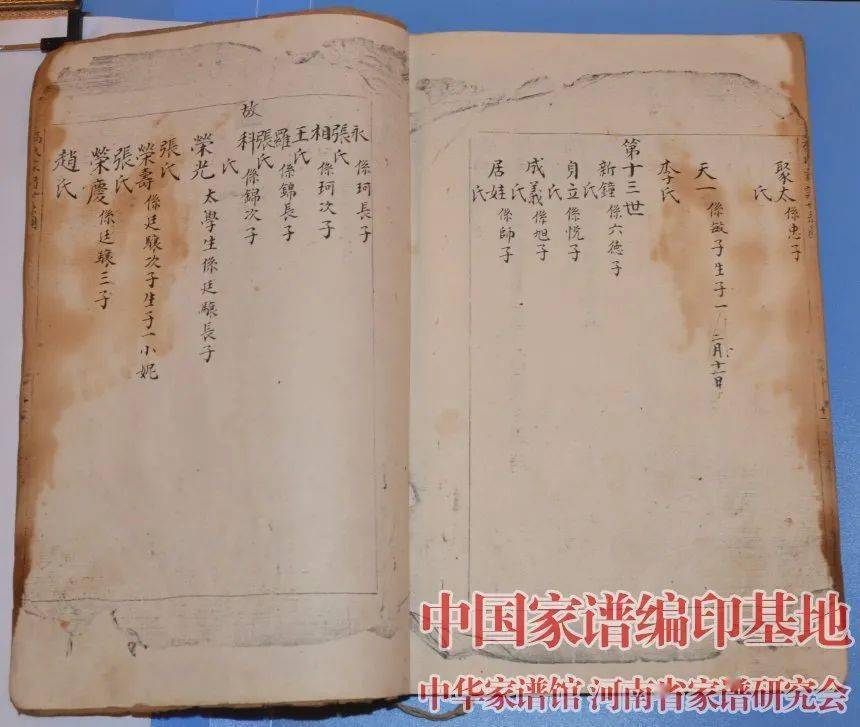 聚太係忠子
氏
天一係敏子生子一 二月十二日
李氏
第十三世
新鐘係六德子
氏
貞立係悦子
氏
成義係旭子
氏
居娃係師子
氏
永係珂長子
張氏
相係珂次子
王氏
羅係錦長子
張氏
故
科係錦次子
氏
榮光太學生係廷驤長子
張氏
榮壽係廷驤次子生子一小妮
張氏
榮慶係廷驤三子
趙氏
中国家谱编印基地
中华家谱馆 河南省家谱研究会